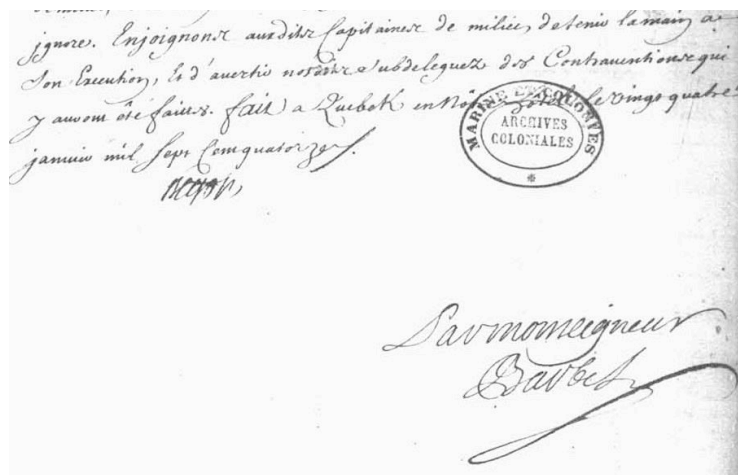 ignore. Enjoignons auxdits Capitaines de milice, de tenir la main a
son Execution, Et d'avertir nosdits Subdeleguez des Contraventions qui
y auront été faittes. fait a Quebek en Nôtre hôtel le vingt quatre
janvier mil sept Cent quatorze
Begon
MARINE ET COLONIES
ARCHIVES
COLONIALES
Par monseigneur
Barbel